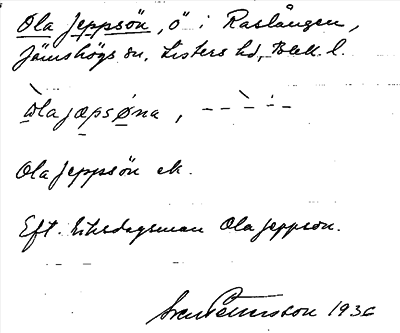 Ola Jeppsön, ö i Raslången,
Jämshögs sn, Listers hd, Blek. l.
Ola jæpsøna, – – – –
Ola Jeppsön ek.
Eft. riksdagsman Ola Jeppson.
Sven Pettersson 1936